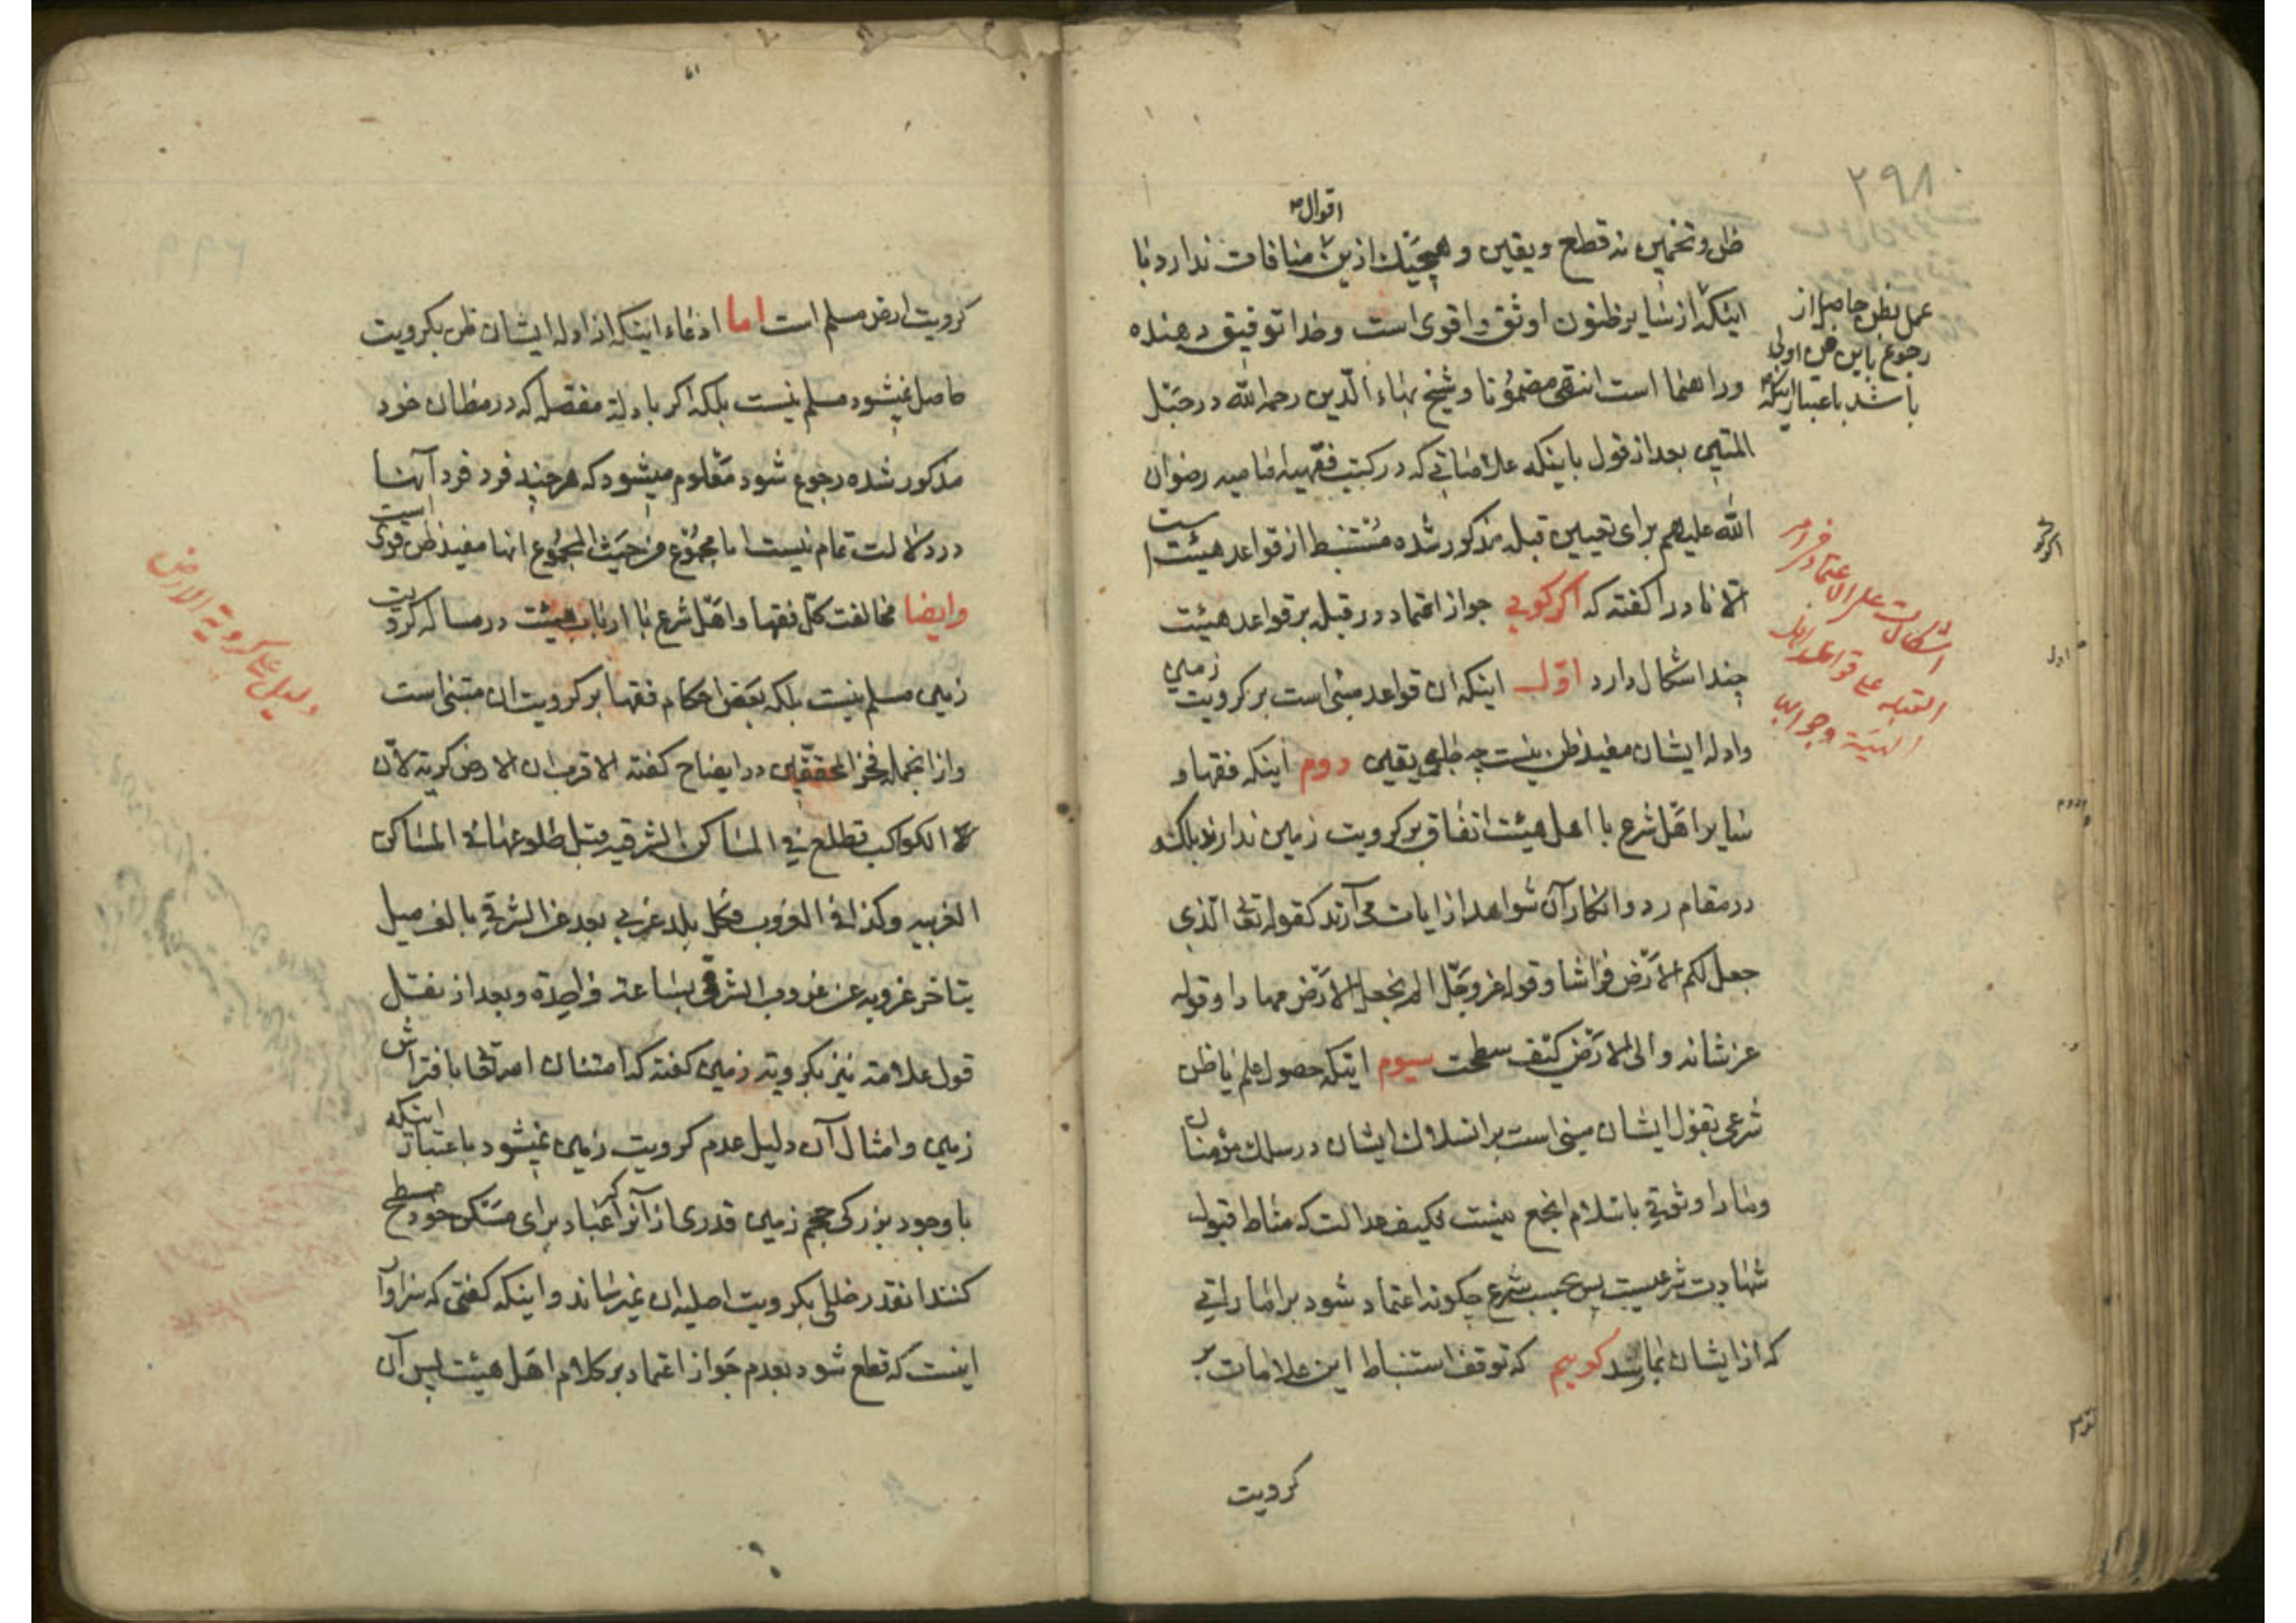 ۲۹۸
اقوال
ظن و تخمین نه قطع و یقین و هیچیک ازین منافات ندارد با
اینکه از سایر ظنون اوثق و اقوی است و خدا توفیق دهنده
و راهنما است انتهی مضمونا و شیخ بهاء الدین رحمه الله در حبل
المتین بعد از قول باینکه علاماتی که در کتب فقهیه امامیه رضوان
الله علیهم برای تعیین قبله مذکور شده مستنبط از قواعد هیئت است
الا نادرا گفته که اگر گویی جواز اعتماد در قبله بر قواعد هیئت
چند اشکال دارد اول اینکه ان قواعد مبنی است بر کرویت زمین
و ادله ایشان مفید ظن نیست چه جای یقین دوم اینکه فقها و
سایر اهل شرع با اهل هیئت اتفاق بر کرویت زمین ندارند بلکه
در مقام رد و انکار آن شواهد از ایات می آرند کقوله تعالی الذی
جعل لکم الارض فراشا و قوله عز و جل الم نجعل الارض مهادا و قوله
عز شانه و الی الارض کیف سطحت سیوم اینکه حصول علم یا ظن
شرعی بقول ایشان مبنی است بر انسلاک ایشان در سلک مؤمنان
و ما را وثوقی باسلام انجمع نیست فکیف عدالت که مناط قبول
شهادت شرعیست پس بحسب شرع چکونه اعتماد شود بر اماراتی
که از ایشان بما رسد کوییم که توقف استنباط این علامات بر
کرویت
عمل بظن حاصل از
رجوع باین فن اولی
باشد باعتبار اینکه
اشکالات علی الاعتماد فی امر
القبله علی قواعد اهل
الهیئة و جوابها
اول
دوم
کرویت ارض مسلم است اما ادعاء اینکه از ادله ایشان ظن بکرویت
حاصل نمیشود مسلم نیست بلکه اکر بادله مفصله که در مظان خود
مذکور شده رجوع شود معلوم میشود که هر چند فرد فرد آنها
در دلالت تمام نیست اما مجموع من حیث المجموع انها مفید ظن قوی است
وایضا مخالفت کل فقها و اهل شرع با ارباب هیئت در مساله کرویت
زمین مسلم نیست بلکه بعض احکام فقها بر کرویت ان مبتنی است
و از انجمله فخر المحققین در ایضاح کفته الاقرب ان الارض کریة لان
لان الکواکب تطلع فی المساکن الشرقیه قبل طلوعها فی المساکن
الغربیه و کذا فی الغروب فکل بلد غربی بعد عن الشرقی بالف میل
یتاخر غروبه عن غروب الشرقی بساعة واحدة و بعد از نقل
قول علامه نیز بکرویة زمین کفته که امتنان امر تعالی بافتراش
زمین و امثال آن دلیل عدم کرویت زمین نمیشود باعتبار اینکه
با وجود بزرکی حجم زمین قدری از آنرا که عباد برای مسکن خود مسطح
کنند انقدر خللی بکرویت اصلیه ان نمیرساند و اینکه کفتی که سزاوار
اینست که قطع شود بعدم جواز اعتماد بر کلام اهل هیئت پس آن
دلیل علی کرویة الارض